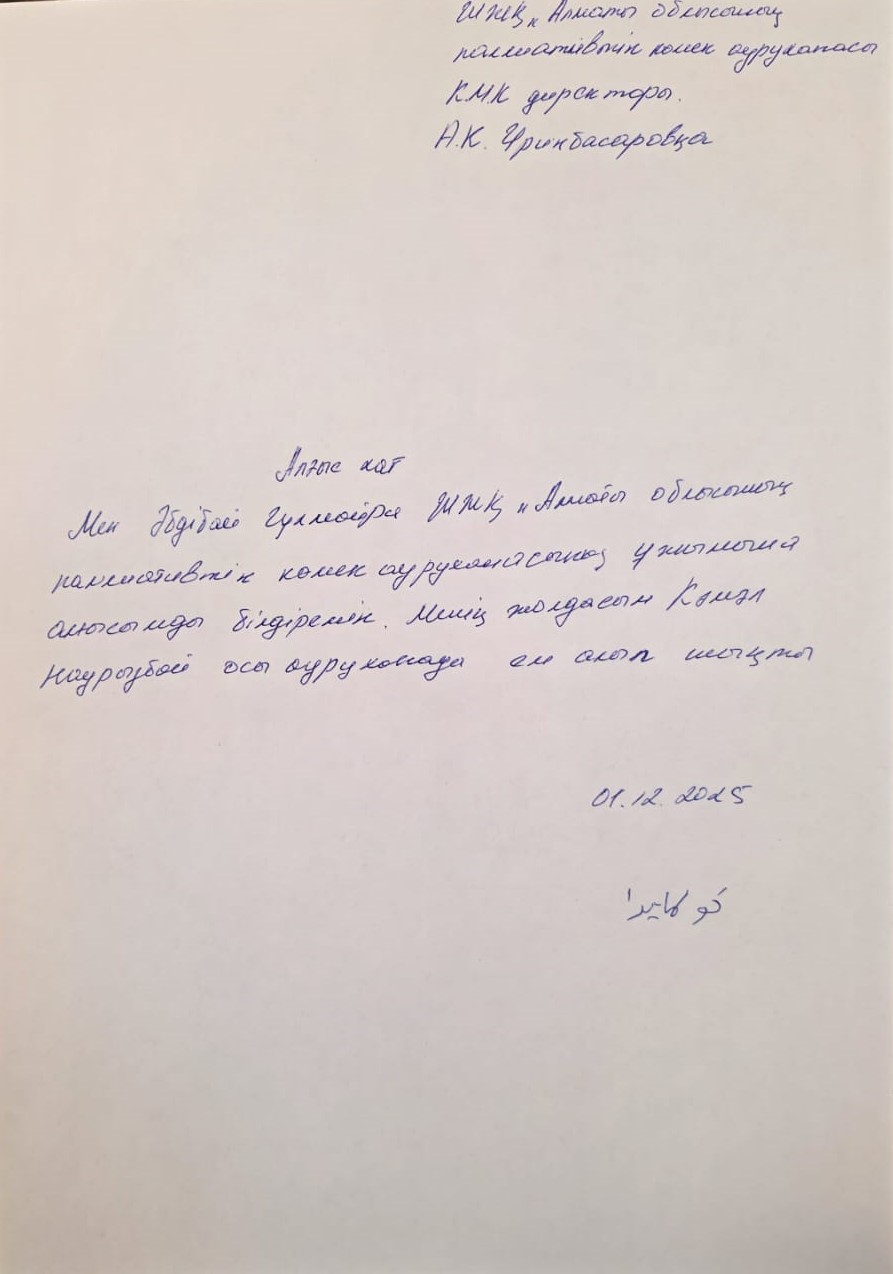 ШЖҚ „Алматы облысының
паллиативтік көмек ауруханасы
КМК директоры.
А.К. Уринбасаровқа
Алғыс хат
Мен Әбдібай Гүлмайра ШЖҚ „Алматы облысының
паллиативтік көмек ауруханасының ұжымына
алғысымды білдіремін. Менің жолдасым Кәмәл
Наурызбай осы ауруханада ем алып шықты
01.12.2025